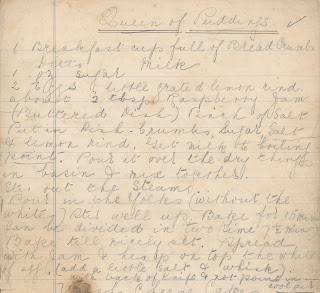 Queen of Puddings ✓
1 Breakfast cups full of Bread Crumbs
Ditto Milk
1 oz sugar
2 Eggs, little grated lemon rind
about 2 tbsp Raspberry Jam
(Buttered Dish) Pinch of Salt
Put in Dish Crumbs, Sugar Salt
& lemon rind. Set milk to boiling
point. Pour it over the dry things
in basin & mix together.
out the Steams
Pour in the yolks (without the
whites) Stir well up. Bake for 15 min
can be divided in two time 7½ min
Bake till nicely set. Spread
with Jam & heap on top the white
of egg. (add a little salt & whisk).
with back of knife & not point
cool air